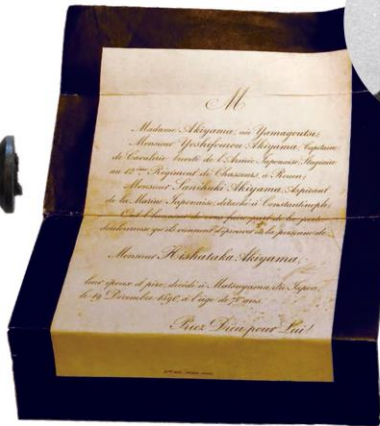 M
Madame Akiyama, née Yamagoutsi;
Monsieur Yoshifourou Akiyama, Capitaine
de Cavalerie brevté de l'Armée Japonaise, Stagiaire
au 12ème Régiment de Chasseurs, à Rouen;
Monsieur Saneyuki Akiyama, Aspirant
de la Marine Japonaise, détaché à Constantinople;
Ont l'honneur de vous faire part de la perte
douloureuse qu'ils viennent d'éprouver de la personne de
Monsieur Hishataka Akiyama,
leur époux et père, décédé à Matsuyama au Japon,
le 19 Décembre 1890, à l'âge de ans.
Priez Dieu pour Lui!